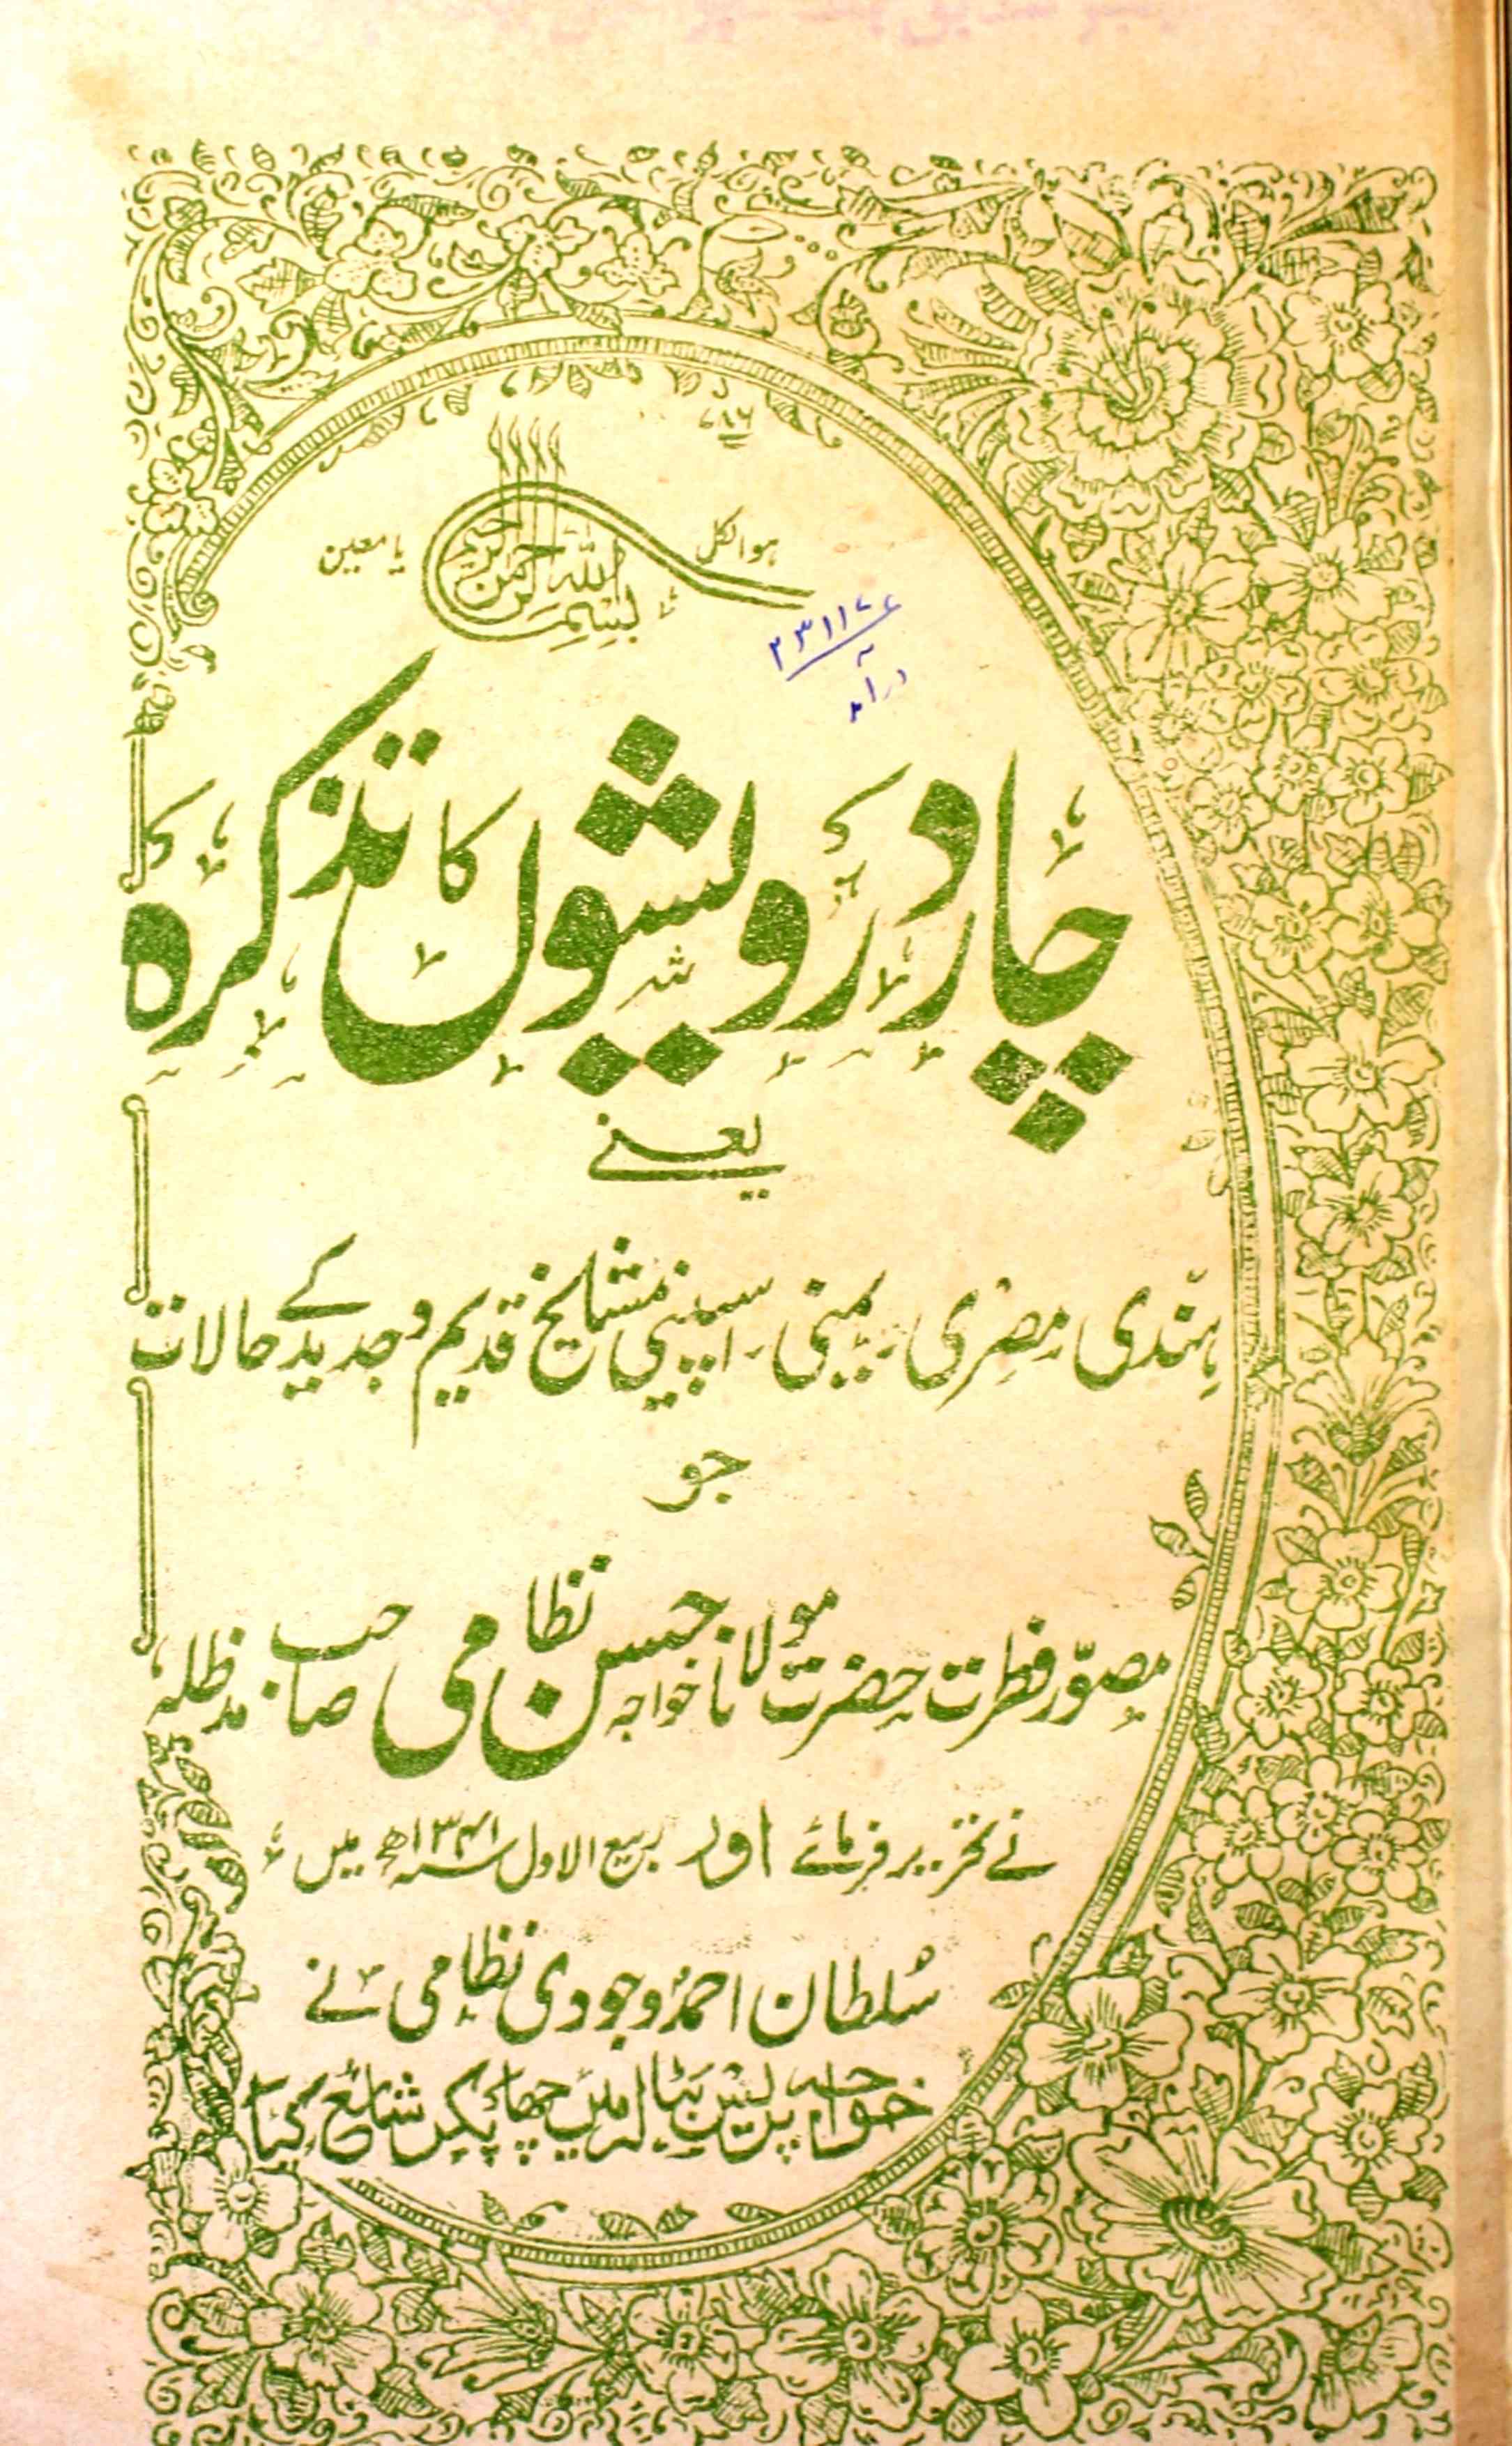 ۷۸۶
ھوالکل
بسم اللہ الرحمن الرحیم
یا معین
۲۳۱۱۷
درآمد
چار درویشوں کا تذکرہ
یعنے
ہندی، مصری، یمنی، اسپینی مشایخ قدیم و جدید کے حالات
جو
مصوّر فطرت حضرت مولانا خواجہ حسن نظامی صاحب مدظلہ
نے تحریر فرمائے اور ربیع الاول سنہ ۱۳۴۱ھ میں
سُلطان احمد وجودی نظامی نے
خواجہ پریس بٹالہ میں چھاپکر شائع کیا